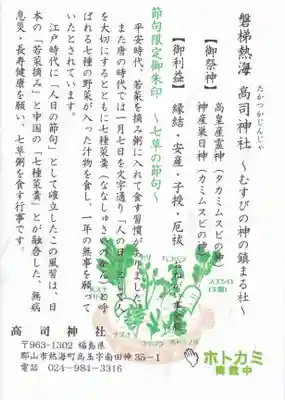 磐梯熱海 高司神社 ～むすびの神の鎮まる社～
たかつかじんじゃ
【御祭神】
高皇産霊神（タカミムスビの神）
神産巣日神（カミムスビの神）
【御利益】 縁結・安産・子授・厄祓
節句限定御朱印 ～七草の節句～
平安時代、若菜を摘み粥に入れて食す習慣がありました。
また唐の時代では一月七日を文字通り「人の日」として人
を大切にするとともに七種菜羹（ななしゅさいのかん）と呼
ばれる七種の野菜が入った汁物を食し、一年の無事を願って
いたとされています。
江戸時代に「人日の節句」として確立したこの風習は、日
本の「若菜摘み」と中国の「七種菜羹」とが融合した、無病
息災・長寿健康を願い、七草粥を食す行事です。
セリ
ハコベラ
スズシロ
ナズナ
高司神社
〒963-1302 福島県
郡山市熱海町高玉字南田仲 35-1
電話 024-984-3316
ホトカミ
掲載中